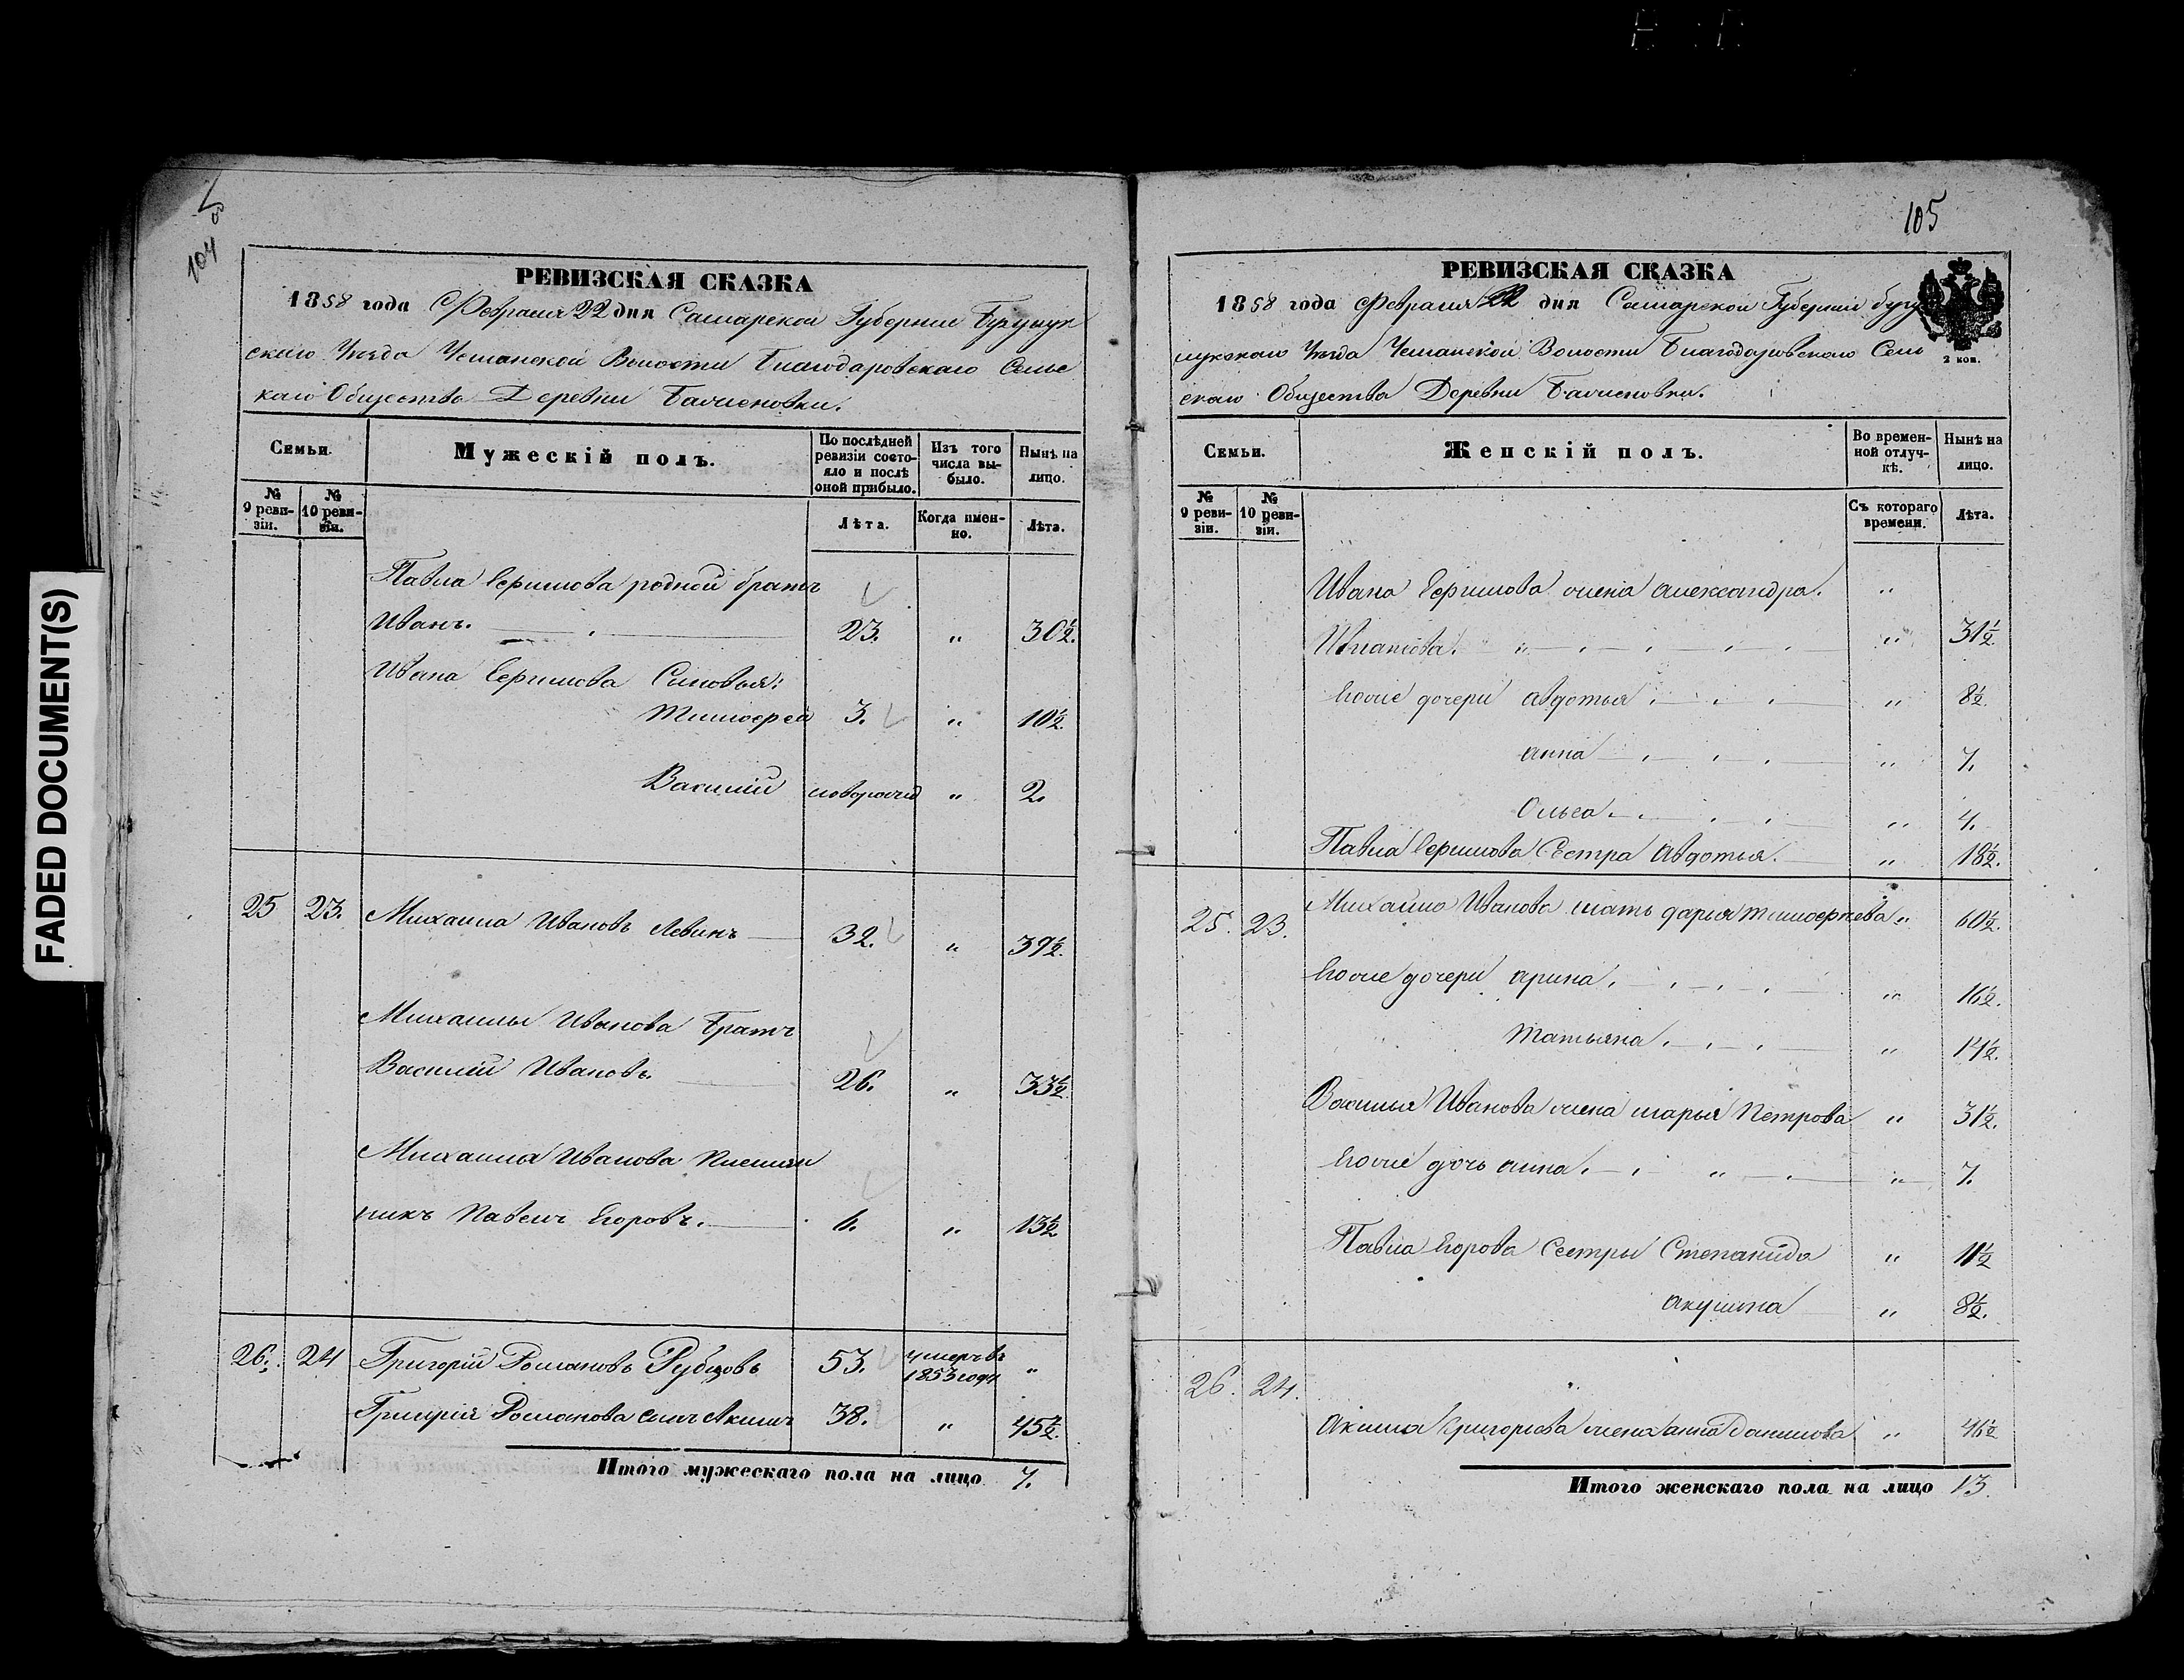 FADED DOCUMENT(S)
104
РЕВИЗСКАЯ СКАЗКА
1858 года Февраля 22 дня Самарской Губернии Бузулук
скаго Уѣзда Чеманской Волости Благодаровскаго Сельс
каго Общества Деревни
Семьи.
Мужескій полъ.
По послѣдней ревизіи состояло и послѣ оной прибыло.
Изъ того числа выбыло.
Нынѣ на лицо.
№ 9 ревизіи.
№ 10 ревизіи.
Лѣта.
Когда именно.
Лѣта.
Павла Ефимова родной братъ
Иванъ. 23. „ 30½.
Ивана Ефимова Сыновья:
Тимофей 3. „ 10½.
Василий новорожд „ 2.
25 23. Михаила Ивановъ Левинъ 32. „ 39½.
Михаилы Иванова Братъ
Василий Ивановъ. 26. „ 33½.
Михаила Иванова Племян
никъ Павелъ Егоровъ. 6. „ 13½
26. 24 Григорий Романовъ Рубцовъ 53. умеръ въ 1853 году „
Григория Романова сынъ Акимъ 38. „ 45½.
Итого мужескаго пола на лицо 7.
105
РЕВИЗСКАЯ СКАЗКА
1858 года Февраля 22 дня Самарской Губернии Бузу
лукскаго Уѣзда Чеманской Волости Благодаровскаго Сель
2 коп.
скаго Общества Деревни
Семьи.
Женскій полъ.
Во временной отлучкѣ.
Нынѣ на лицо.
№ 9 ревизіи.
№ 10 ревизіи.
Съ котораго времени.
Лѣта.
Ивана Ефимова жена александра. „
Игнатова. „ 31½
Егоже дочери авдотья „ 8½.
анна „ 7.
Ольга „ 4.
Павла Ефимова Сестра Авдотья. „ 18½.
25. 23. Михайло Иванова мать дарья тимофеева „ 60½.
Егоже дочери арина „ 16½.
Татьяна „ 14½.
Василья Иванова жена марья Петрова „ 31½.
Егоже дочь анна „ 7.
Павла Егорова Сестры Степанида „ 11½
акулина „ 8½.
26. 24. „
Акима Григорьева жена анна Данилова „ 46½
Итого женскаго пола на лицо 13.